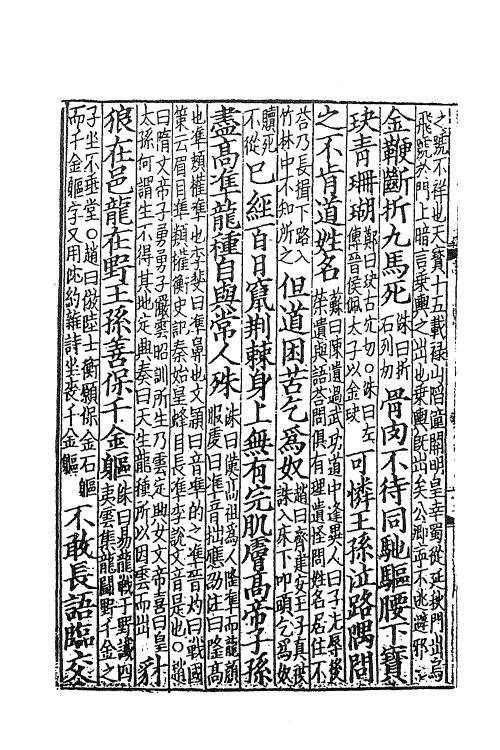 之號不祥也天寶十五載祿山陷潼關明皇幸蜀從延秋門出烏
飛號外門上暗言乘輿之出也乘輿既出矣公卿而下逃避邪
金鞭斷折九馬死
洙曰折
石列切
骨肉不待同馳驅腰下寶
玦青珊瑚
鄭曰玦古穴切○洙曰左
傳晉侯佩太子以金玦
可憐王孫泣路隅問
之不肯道姓名
蘇曰陳遺過武功道中逢異人曰子汚辱後
榮遺與語荅問俱有理遺怪問姓名居住不
荅乃長揖下路入
竹林中不知所之
但道困苦乞爲奴
趙曰齊建安王子真被
誅入床下叩頭乞爲奴
贖死
不從
已經百日竄荆棘身上無有完肌膚高帝子孫
盡高準龍種自與常人殊
洙曰漢高祖爲人隆準而龍顔
服虔曰準音拙應劭注曰隆高
也準頬權準也李斐曰準鼻也文穎曰音準的之準晉灼曰戰國
策云眉目準頞權衡史記秦始皇蜂目長準李説文音是也○趙
曰隋文帝子勇勇子儼雲昭訓所生乃雲定興女文帝喜曰皇
太孫何謂生不得其地定興奏曰天生龍種所以因雲而出
豺
狼在邑龍在野王孫善保千金軀
洙曰易龍戰于野讖四
夷雲集龍鬭野千金之
子坐不垂堂○趙曰倣陸士衡願保金石軀
而千金軀字又用沈約雜詩坐喪千金軀
不敢長語臨交